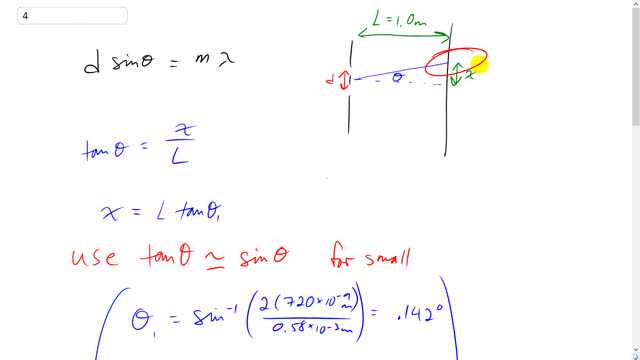 4
L = 1.0m
d sinθ = m λ
d
θ
x
tanθ = x / L
x = L tanθ₁
use tanθ ≃ sinθ for small
θ₁ = sin⁻¹ ( 2(720×10⁻⁹ m) / 0.58×10⁻³m ) = .142°